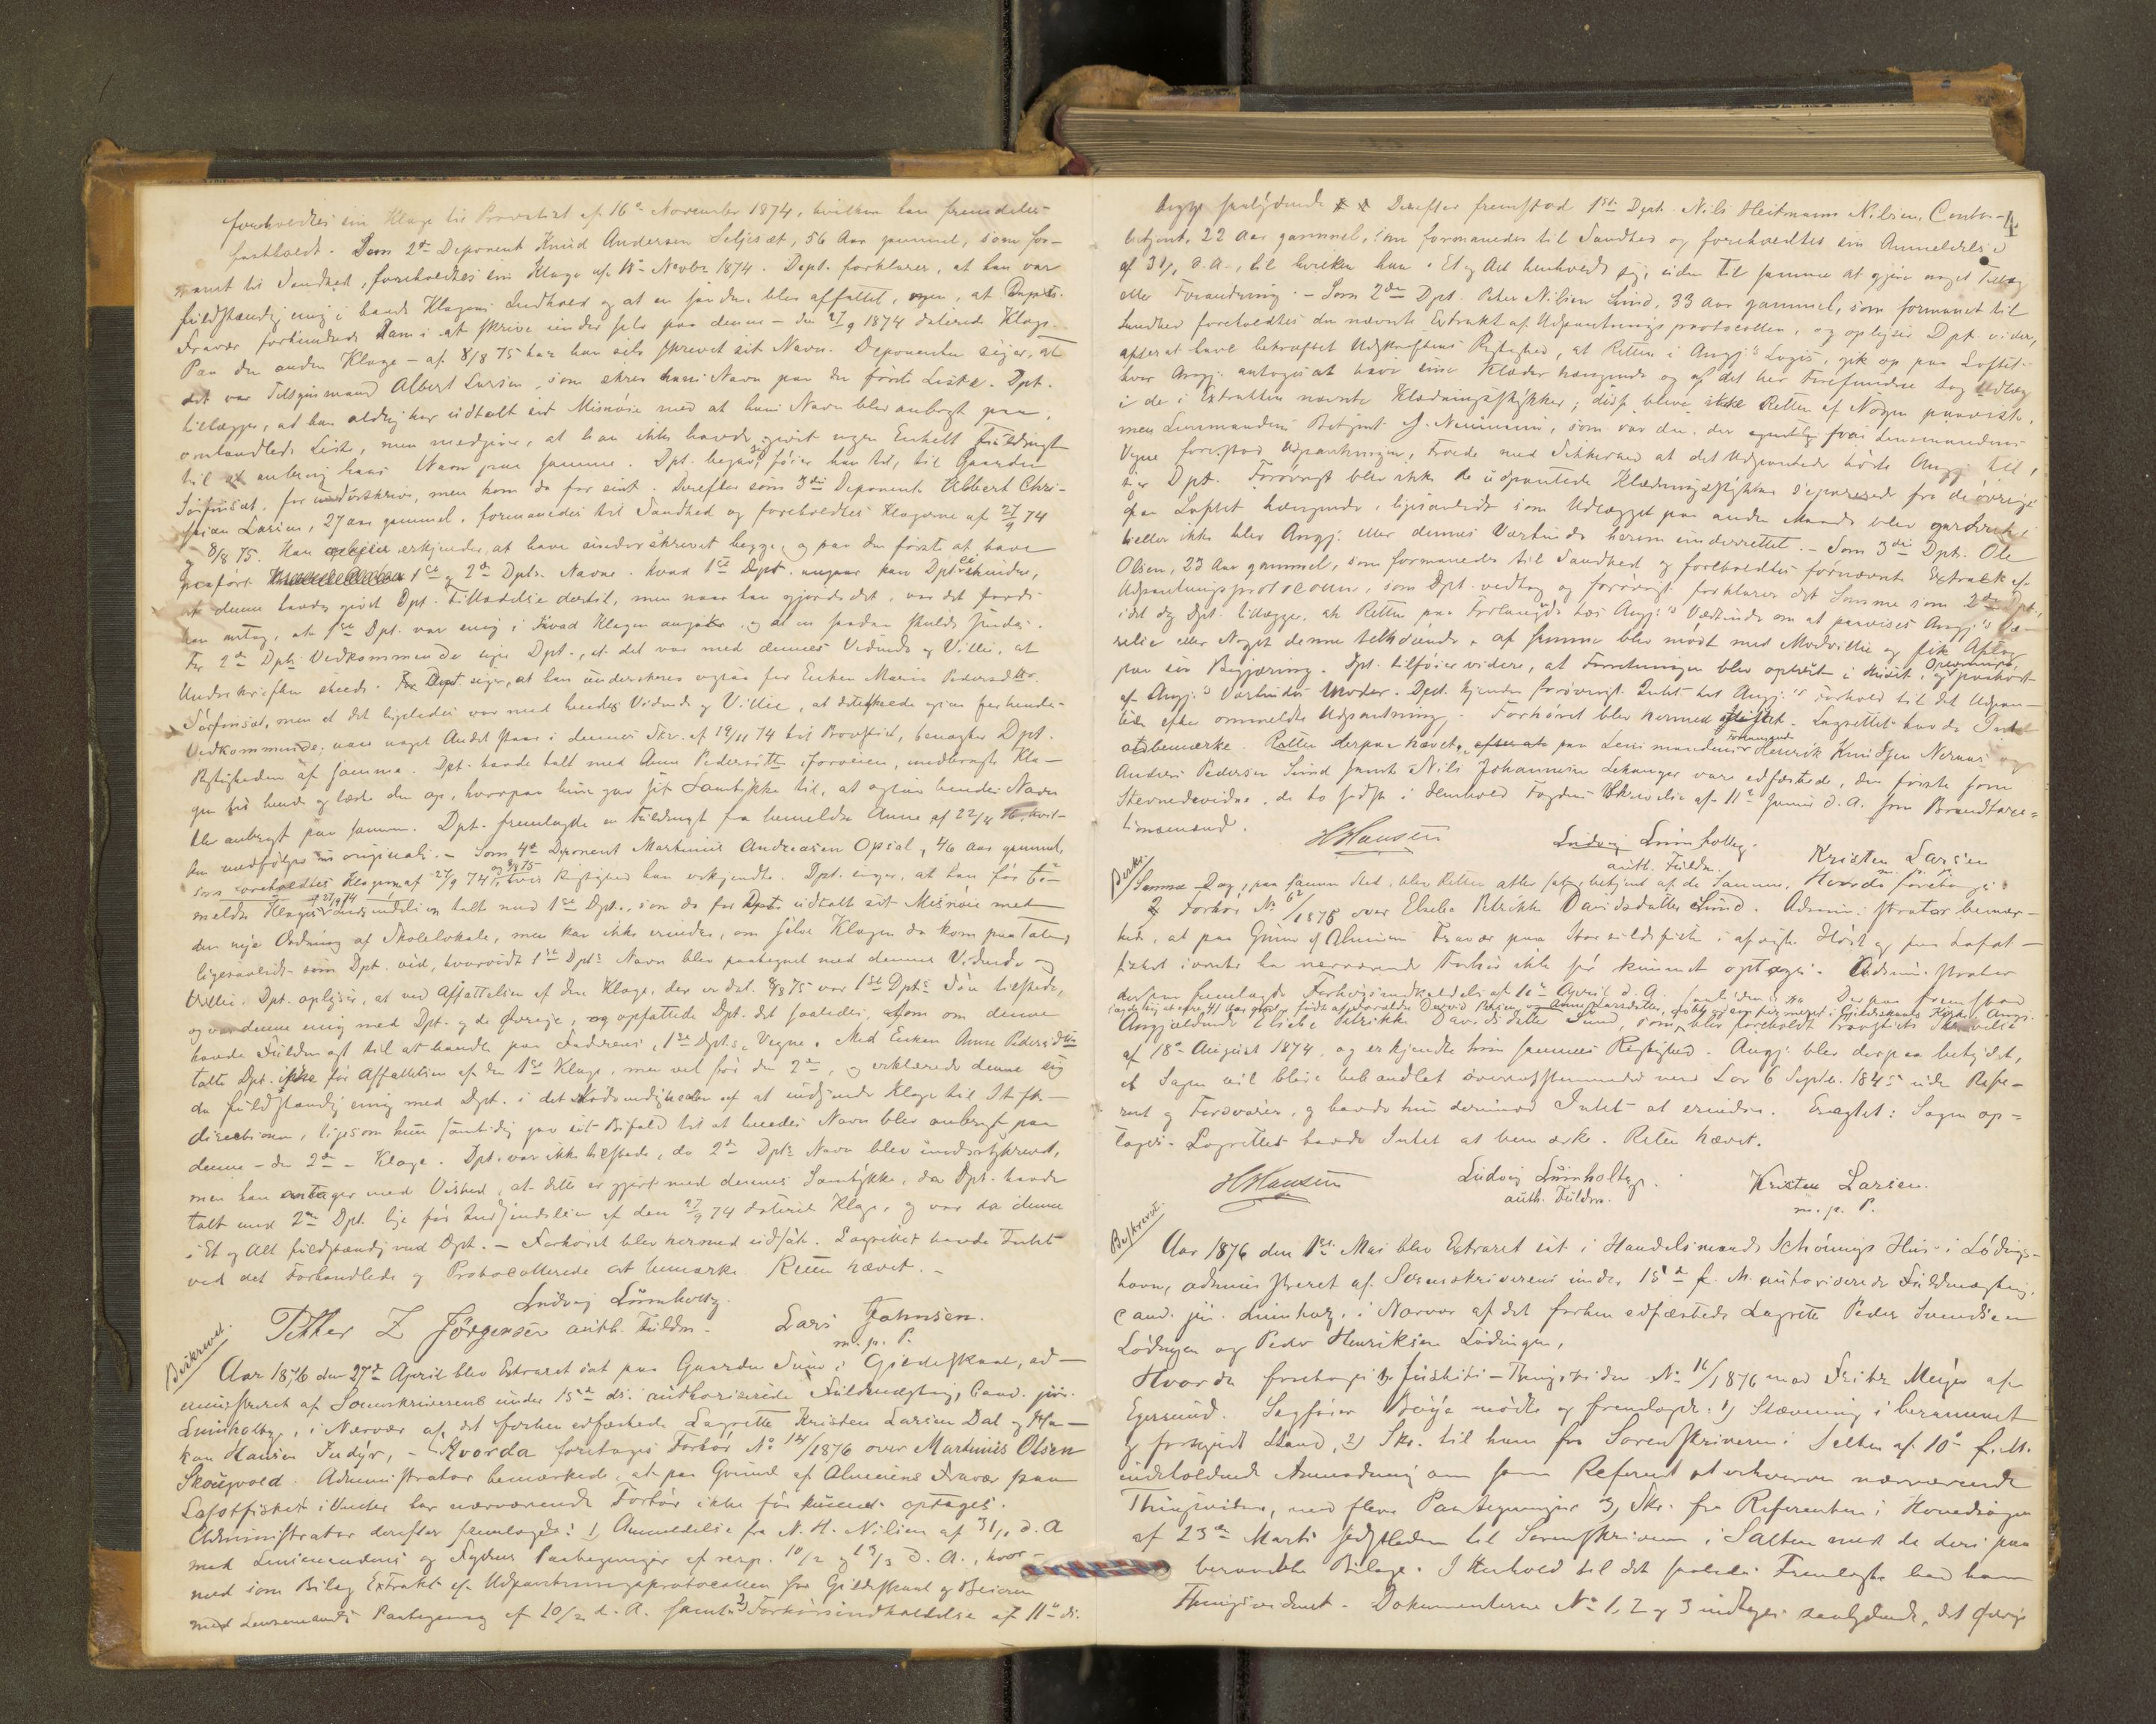 foreholdtes sin Klage til Provstiet af 16de November 1874, hvilken han fremdeles
fastholdt. Som 2den Deponent Knud Andersen Seljesæt, 56 Aar gammel, som for-
manet til Sandhed, foreholdtes sin Klage af 16de Novbr 1874. Dept. forklarer, at han var
fuldstændig enig i hands Klagens Indhold og at en saadan blev affattet, men, at Depts.
Fravær forhindrede ham i at skrive under selv paa denne – den 27/9 1874 daterede Klage.
Paa den anden Klage – af 8/8 75 har han selv skrevet sit Navn. Deponenten siger, at
det var Tilsynsmand Albert Larsen, som skrev hans Navn paa den første Liste. Dpt.
tillægger, at han aldrig har udtalt sit Misnøie med at hans Navn blev anbragt paa
omhandlede Liste, men medgiver, at han ikke havde givet nogen Enkelt Fuldmagt
til at anbringe hans Navn paa samme. Dpt. begav sig, føier han til, til Gaarden
Sørfinsæt, for at underskrive, men kom da for sent. Derefter som 3die Deponent Albert Chri-
stian Larsen, 27 aar gammel, formanedes til Sandhed og foreholdtes Klagerne af 27/9 74
og 8/8 75. Han erkjender at have underskrevet begge, og paa den første at have
paaført 1ste og 2den Dpts. Navne. Hvad 1ste Dpt. angaar kan Dpt. ei erindre,
at denne havde givet Dpt. Tilladelse dertil, men naar han gjorde det, var det fordi
han antog, at 1ste Dpt. var enig i Hvad Klagen angaar og at en saadan skulde sendes.
For 2den Dpts Vedkommende siger Dpt., at det var med dennes Vidende og Villie, at
Underskriften skede. Dept siger, at han underskrev ogsaa for Enken Maren Pedersdatter
Sørfinsæt, men at det ligeledes var med hendes Vidende og Villie, at det skede ogsaa for hendes
Vedkommende; naar noget Andet staar i dennes Skr. af 19/11 74 til Provstiet, benægter Dpt.
Rigtigheden af samme. Dpt. havde talt med Anne Pedersdatter iforveien, medbragte Kla-
gen til hende og læste den op, hvorpaa hun gav sit Samtykke til, at ogsaa hendes Navn
blev anbragt paa samme. Dpt. fremlagde en Fuldmagt fra bemeldte Anne af 22/4 76, hvil-
ken medfølger in originali. – Som 4de Deponent Martinus Andreasen Opsal, 46 aar gammel,
som foreholdtes Klagerne af 27/9 74 og 8/8 75, hvis Rigtighed han erkjendte. Dpt. siger, at han før be-
meldte Klages af 27/9 74 Indsendelse talte med 1ste Dpt., som da for Dpt. udtalte sit Misnøie med
den nye Ordning af Skolelokale, men kan ikke erindre, om selve Klagen da kom paa Tale,
ligesaalidt som Dpt. ved, hvorvidt 1ste Dpts Navn blev paategnet med dennes Vidende og
Villie. Dpt. oplyser, at ved Affattelsen af den Klage, der er dat. 8/8 75 var 1ste Dpts Søn tilstede,
og var denne enig med Dpt. og de Øvrige, og opfattede Dpt. det saaledes, som om denne
havde Fuldmagt til at handle paa Faderens, 1ste Dpts, Vegne. Med Enken Anne Pedersdatter
talte Dpt. ikke før Affattelsen af den 1ste Klage, men vel før den 2den, og erklærede denne sig
da fuldstændig enig med Dpt. i det Nødvendige af at indsende Klage til Stifts-
directionen, ligesom hun samtidig gav sit Bifald til at hendes Navn blev anbragt paa
denne – den 2den – Klage. Dpt. var ikke tilstede, da 2den Dpts Navn blev underskrevet,
men han antager med Vished, at dette er gjort med dennes Samtykke, da Dpt. havde
talt med 2den Dpt. lige før Indsendelsen af den 27/9 74 daterede Klage, og var da denne
i Et og Alt fuldstændig med Dpt. – Forhøret blev hermed sluttet. Lagrettet havde Intet
ved det Forhandlede og Protocollerede at bemærke. Retten hævet. –
Ludvig Lumholtz.
Petter Z Jørgensen auth. Fuldm. Lars Johnsen.
m. p. P.
Beskrevet.
Aar 1876 den 27de April blev Extraret sat paa Gaarden Sund i Gildeskaal, ad-
ministreret af Sorenskriverens under 15de ds. authoriserede Fuldmægtig, Cand. jur.
Lumholtz, i Nærvær af det forhen edfæstede Lagrette Kristen Larsen Dal og Ha-
kon Hansen Indyr, – Hvorda foretoges Forhør No 14/1876 over Martinus Olsen
Skougvold. Administrator bemærkede, at paa Grund af Almuens Fravær paa
Lofotfisket i Vinter har nærværende Forhør ikke før kunnet optages.
Administrator derefter fremlagde: 1, Anmeldelse fra N. H. Nilsen af 31/1 d. A
med Lensmandens og Fogdens Paategninger af resp. 10/2 og 13/3 d. A., hvor-
med som Bilag Extrakt af Udpantningsprotocollen for Gildeskaal og Beieren
med Lensmandens Paategning af 10/2 d. A. samt 2) Forhørsindkaldelse af 11te ds.
4
begge saalydende Derefter fremstod 1ste Dpt. Nils Heitmann Nilsen, Contor-
betjent, 22 Aar gammel, som formanedes til Sandhed og foreholdtes sin Anmeldelse
af 31/1 d. A., til hvilken han i Et og Alt henholdt sig, uden til samme at gjøre noget Tillæg
eller Forandring. – Som 2den Dpt. Peter Nilsen Sund, 33 Aar gammel, som formanet til
Sandhed foreholdtes den nævnte Extrakt af Udpantningsprotocollen, og oplyser Dpt. videre,
efterat have bekræftet Udskriftens Rigtighed, at Retten i Angj.s Logis, gik op paa Loftet
hvor Angj. antoges at have sine Klæder hængende og af det her Forefundne tog Udlæg
i de i Extrakten nævnte Klædningsstykker; disse bleve ikke Retten af Nogen paavist,
men Lensmandens Betjent J. Neumann, som var den, der egentlig fra Lensmandens
Vegne forestod Udpantningen, troede med Sikkerhed at det Udpantede hørte Angj. til,
siger Dpt. Forøvrigt blev ikke de udpantede Klædningsstykker separerede fra de øvrige
paa Loftet hængende, ligesaalidt som Udlægget paa anden Maade blev garderet;
heller ikke blev Angj. eller dennes Værtinde herom underrettet. – Som 3die Dpt. Ole
Olsen, 23 Aar gammel, som formanedes til Sandhed og foreholdtes fornævnte Extrakt af
Udpantningsprotocollen, som Dpt. vedtog og forøvrigt forklarer det Samme som 2den Dpt.,
idet dog Dpt. tillægger, at Retten paa Forlangende hos Angj.'s Værtinde om at paavises Angj.'s Væ-
relse eller Noget denne tilhørende, af samme blev mødt med Modvillie og fik Afslag
paa sin Begjæring. Dpt. tilføier videre, at Forretningen blev oplæst i Huset, og paahørt
af Angj.'s Værtindes Moder. Dept. kjender forøvrigt Intet til Angj.'s Forhold til det Udpan-
tede efter ommeldte Udpantning. Forhøret blev hermed sluttet. Lagrettet havde Intet
at bemærke. Retten derpaa hævet, efterat paa Lensmandens Forlangende Henrik Knudsen Nernæs og
Anders Pedersen Sund samt Nils Johannesen Lekanger vare edfæstede, den første som
Stevnedvidne, de to sidste i Henhold Fogdens Skrivelse af 11te Januar d. A. som Brandtaxa-
tionsmænd.
HHansen Ludvig Lumholtz. Kristen Larsen
auth. Fuldm. m. p. P.
Beskr.
Samme Dag, paa samme Sted, blev Retten atter sat og betjent af de Samme, Hvorda foretoges:
Forhør No 62/1875 over Elsebe Petrikke Davidsdatter Sund. Administrator bemær-
kede, at paa Grund af Almuens Fravær paa Storsildfiske i afvigte Høst og paa Lofot-
fisket ivinter har nærværende Forhør ikke før kunnet optages. Administrator
derpaa fremlagde Forhørsindkaldelse af 11te April d. A. Derpaa fremstod
Angjældende Elsebe Petrikke Davidsdatter Sund, som blev foreholdt Provstiets Skrivelse
af 18de August 1874, og erkjendte hun sammes Rigtighed. Angj. blev derpaa betydet,
at Sagen vil blive behandlet overensstemmende med Lov 6 Septbr. 1845 uden Refe-
rent og Forsvarer, og havde hun derimod Intet at erindre. Eragtet: Sagen op-
tages. Lagrettet havde Intet at bemærke. Retten hævet.
HHansen Ludvig Lumholtz. Kristen Larsen.
auth. Fuldm. m. p. P.
Beskrevet.
Aar 1876 den 1ste Mai blev Extraret sat i Handelsmand Schönings Hus i Lødings-
havn, administreret af Sorenskriverens under 15de f. M. autoriserede Fuldmægtig,
Cand. jur. Lumholtz, i Nærvær af det forhen edfæstede Lagrette Peder Svendsen
Lødingen og Peder Henriksen Lødingen,
Hvorda foretoges Justits-Thingsvidne No 11/1876 mod Fritz Meyer af
Egersund. Sagfører Bøye mødte og fremlagde: 1) Stævning i berammet
og forkyndt Stand, 2) Skr. til ham fra Sorenskriveren i Salten af 10de f. M.
indeholdende Anmodning om som Referent at erhverve nærværende
Thingsvidne, med flere Paategninger 3) Skr. fra Referenten i Hovedsagen
af 23de Marts sidstleden til Sorenskriveren i Salten med de deri paa
beraabte Bilage. I Henhold til det saaledes Fremlagte bad han
Thingsvidnet. Dokumenterne No 1, 2 og 3 indtages saalydende, det Øvrige